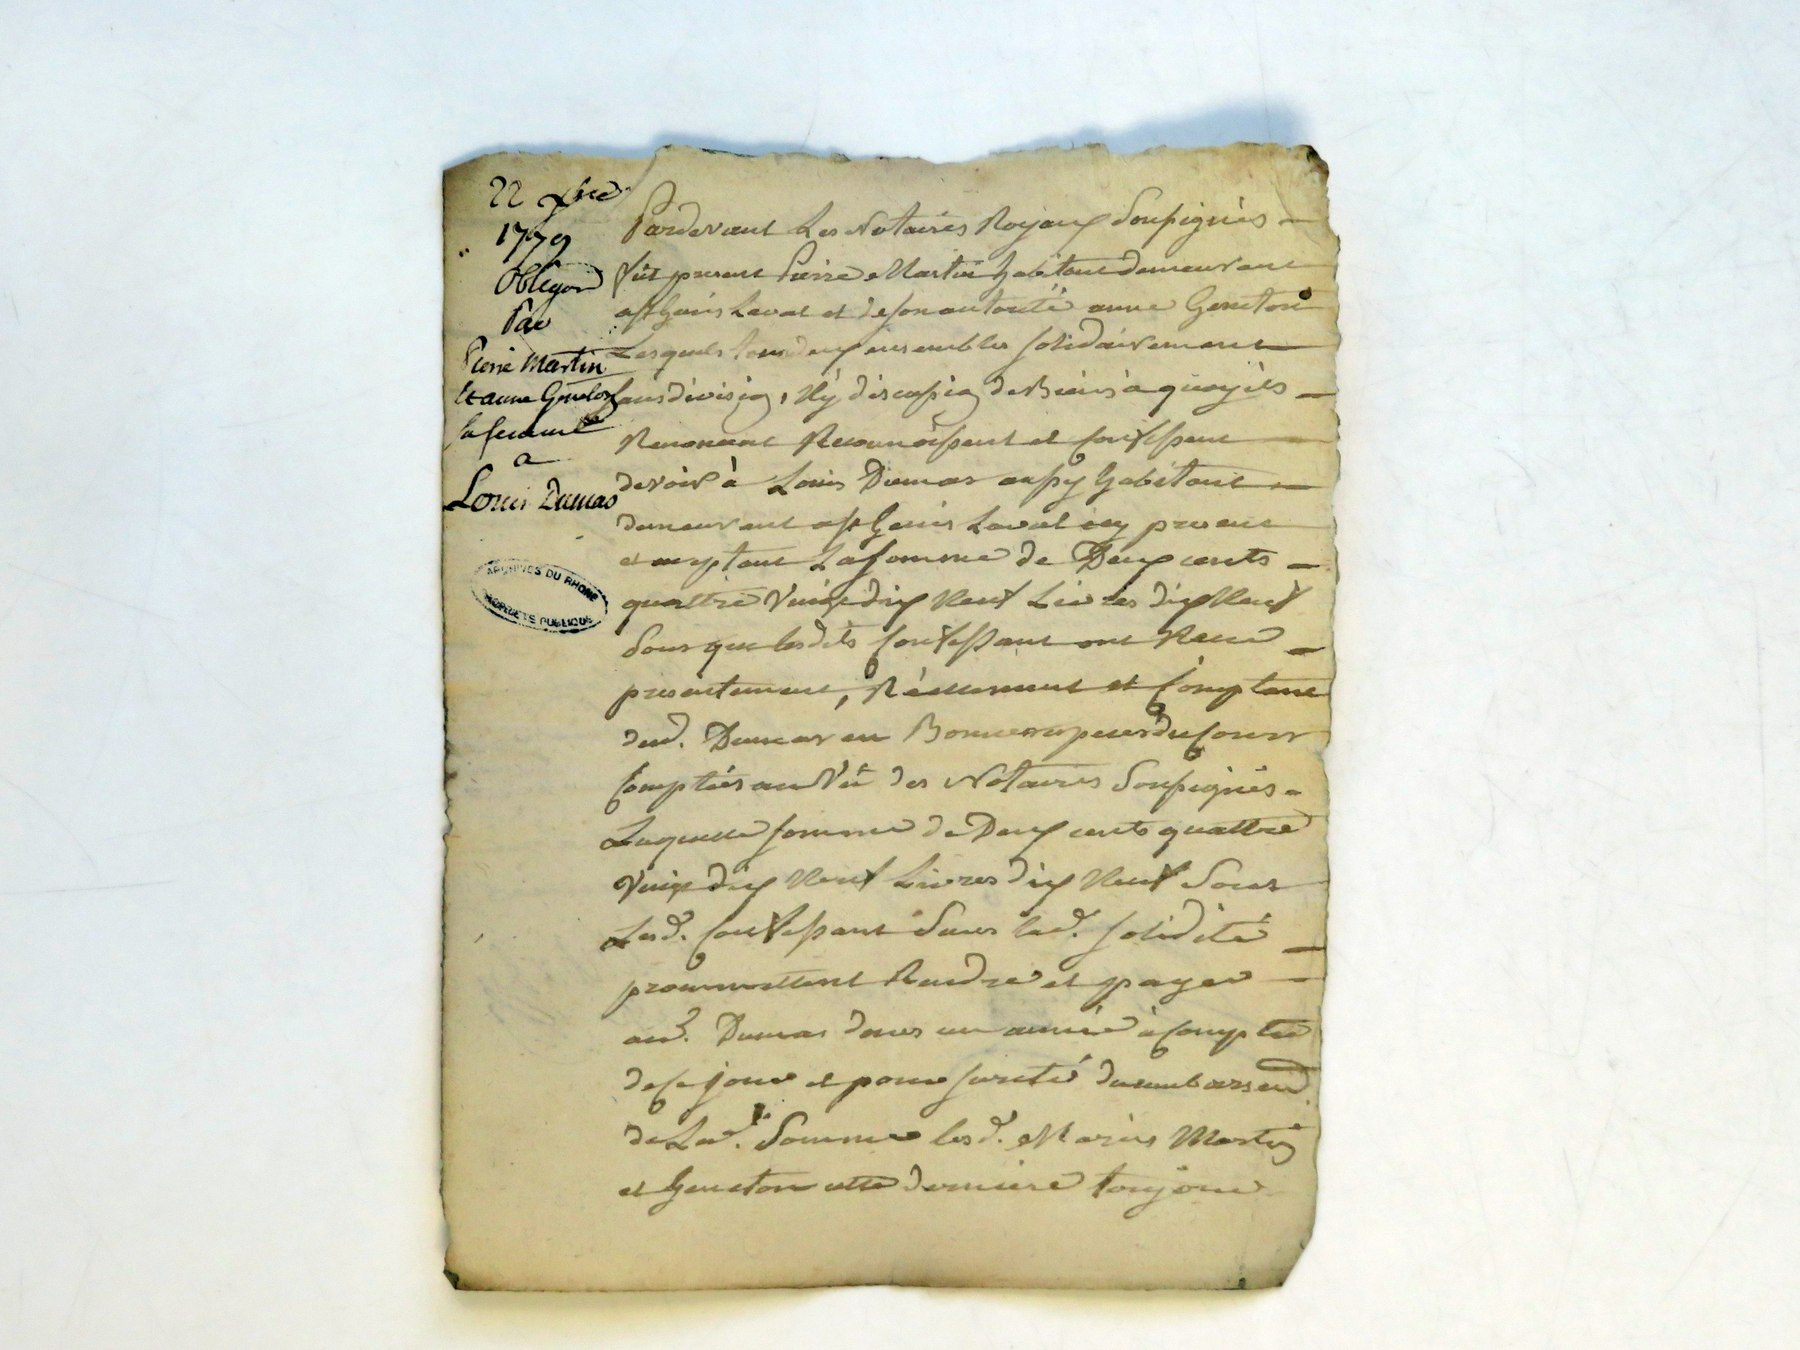 22 xbre
1779
Obligon
Par
Pierre Martin
et anne Goneton
sa femme
a
Louis Dumas
ARCHIVES DU RHONE
PROPRIETE PUBLIQUE
Pardevant Les Notaires Royaux Soussignés
fut present Pierre Martin habitant demeurant
a st Genis Laval et de son autorité anne Goneton
Lesquels tous deux ensembles solidairement
sans division, Ny discussion de Biens a quoy ils
Renoncent Reconnoissent et Confessent
devoir à Louis Dumas aussy habitant
demeurant a st Genis Laval icy present
et acceptant La somme de Deux cents
quattre Vingt dix Neuf Livres dix Neuf
Sous que lesdits Confessant ont Receu
presentement, Réellement et Comptant
dud. Dumas en Bonnes especes du Cours
Comptées au Vû des Notaires Soussignés
Laquelle somme de Deux cents quattre
Vingt dix Neuf Livres dix Neuf Sous
Lesd. Confessant Sous lad. solidité
prommettent Rendre et payer
aud. Dumas dans un année à Compter
de Ce jour et pour sureté du
de Lad. Somme lesd. Mariés Martin
et Goneton cette derniere toujour